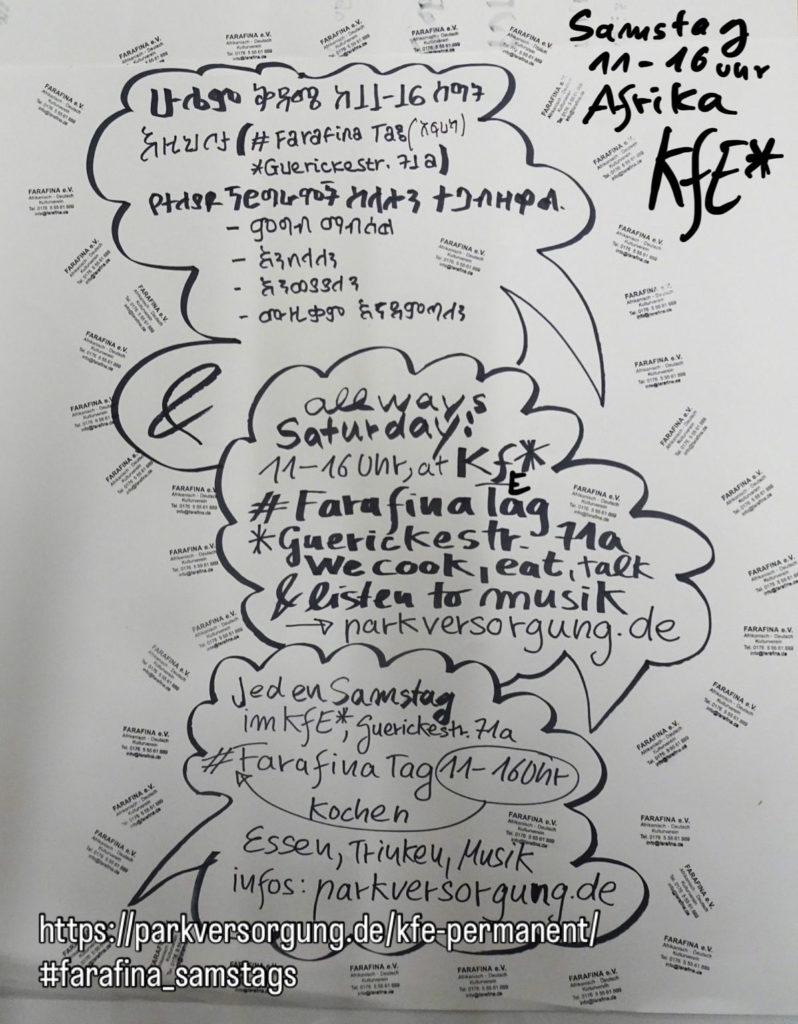 Samstag
11-16 Uhr
Afrika
KfE*
ሁሌም ቅዳሜ ከ11-16 ሰዓት
እዚህ ነን (# Farafina Tag (አፍሪካ)
*Guerickestr. 71a)
- ምግብ ማብሰል
- እንበላለን
- እንጠጣለን
- ሙዚቃም እናዳምጣለን
&
allways
Saturday:
11-16 Uhr, at KfE*
# Farafina Tag
*Guerickestr. 71a
we cook, eat, talk
& listen to musik
→ parkversorgung.de
Jeden Samstag
im KfE*, Guerickestr. 71a
# Farafina Tag 11-16 Uhr
Kochen
Essen, Trinken, Musik
infos: parkversorgung.de
https://parkversorgung.de/kfe-permanent/
#farafina_samstags
FARAFINA e.V.
Afrikanisch - Deutsch
Kulturverein
Tel. 0176 5 55 61 889
info@farafina.de